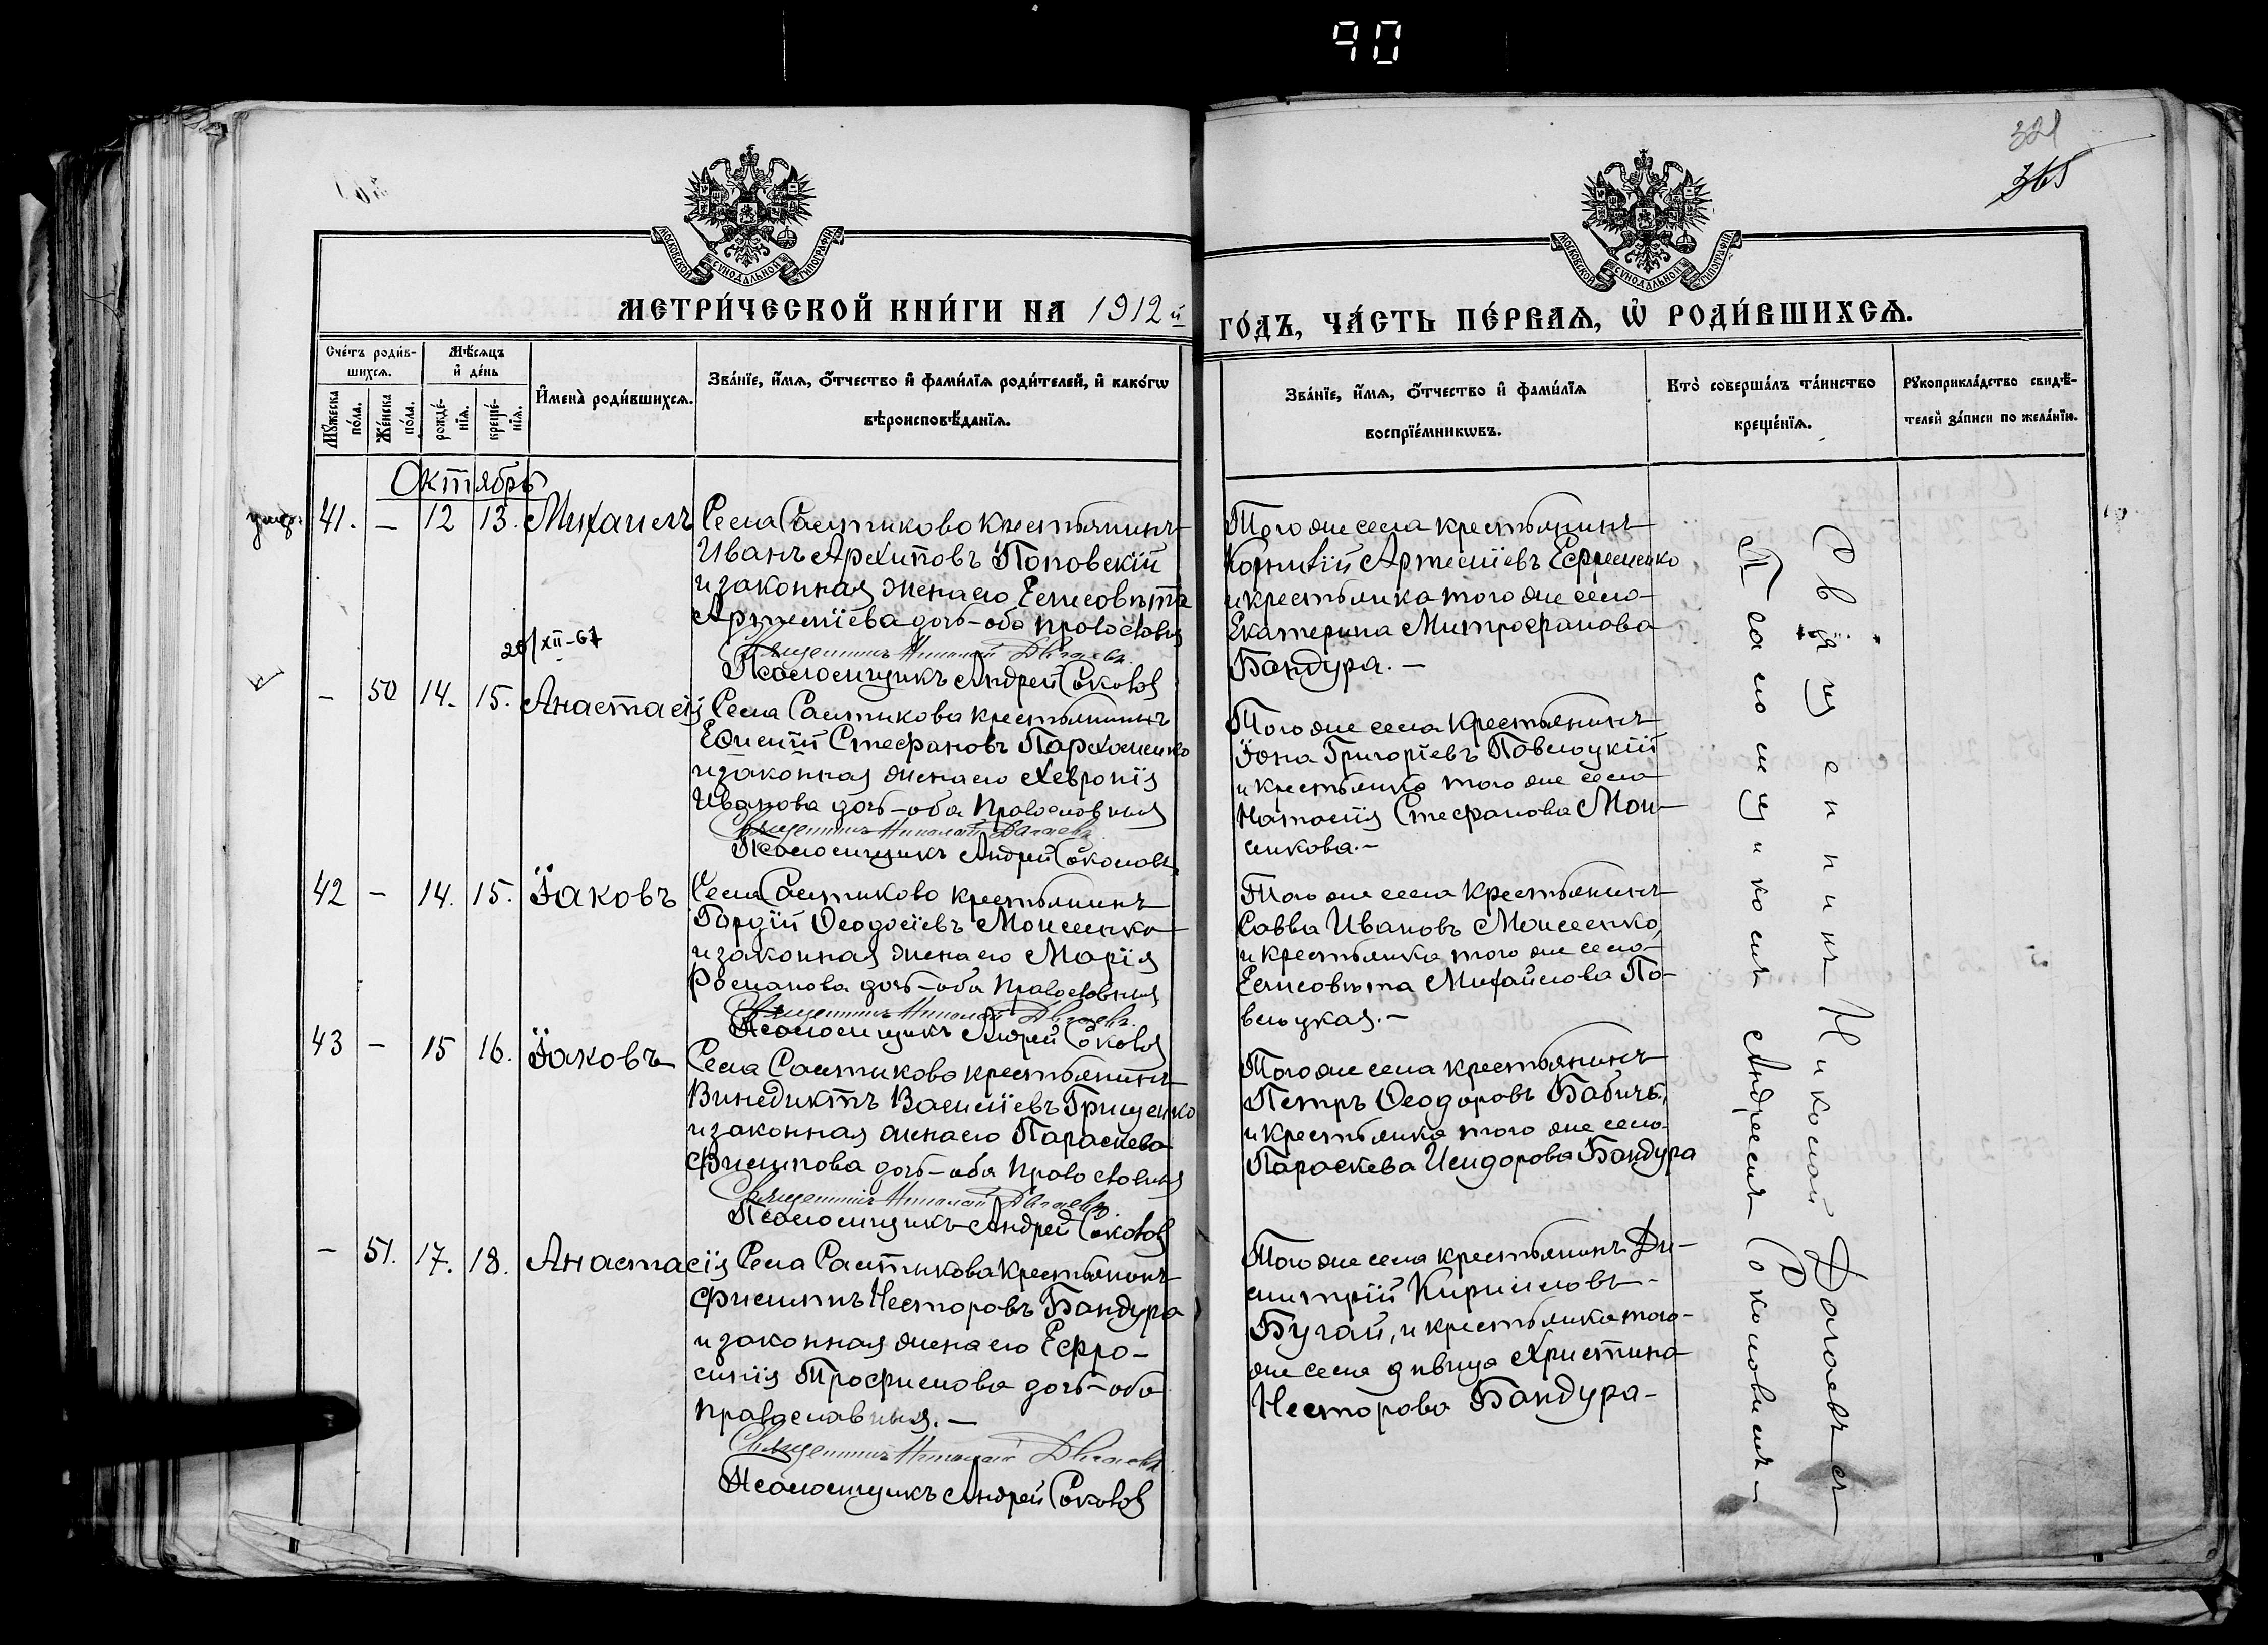 90
321
365
МОСКОВСКОЙ СУНОДАЛЬНОЙ ТИПОГРАФІИ
МОСКОВСКОЙ СУНОДАЛЬНОЙ ТИПОГРАФІИ
МЕТРИ́ЧЕСКОЙ КНИ́ГИ НА 1912 й
ГО́ДЪ, ЧА́СТЬ ПЕ́РВАѦ, Ѡ҆ РОДИ́ВШИХСѦ.
Сче́тъ роди́в-
шихсѧ.
Мѣ́сѧцъ
и҆ де́нь
Мꙋ́жеска
по́ла.
Же́нска
по́ла.
рожде́-
нїѧ.
креще́-
нїѧ.
И҆мена̀ роди́вшихсѧ.
Зва́нїе, и҆́мѧ, ѻ҆́тчество и҆ фами́лїѧ роди́телей, и҆ како́гѡ
вѣроисповѣ́данїѧ.
Зва́нїе, и҆́мѧ, ѻ҆́тчество и҆ фами́лїѧ
воспрїе́мникѡвъ.
Кто̀ соверша́лъ та́инство
креще́нїѧ.
Рꙋкоприкла́дство свидѣ́-
телей за́писи по жела́нїю.
Октябрь
умр.
41. – 12 13. Михаилъ
Села Салтыкова крестьянинъ
Иванъ Архиповъ Поповскій
и законная жена его Елисовѣта
Артеміева дочь – оба православн
Священникъ Николай
Псаломщикъ Андрей Соколов
Того же села крестьянинъ
Корнилій Артеміевъ Ефременко
и крестьянка того же села
Екатерина Митрофанова
Бандура. –
20/XII-67
– 50 14. 15. Анастасія
Села Салтыкова крестьянинъ
Ефимій Стефановъ Пархоменко
и законная жена его Хевронія
Иванова дочь – оба православныя
Священникъ Николай
Псаломщикъ Андрей Соколовъ
Того же села крестьянинъ
Іона Григоріевъ Павлоцкій
и крестьянка того же села
Наталія Стефанова Мои-
сикова. –
42 – 14. 15. Іаковъ
Села Салтыкова крестьянинъ
Гордій Ѳеодосіевъ Моисеенко
и законная жена его Марія
Романова дочь – оба православныя
Священникъ Николай
Псаломщикъ Андрей Соколов
Того же села крестьянинъ
Савва Ивановъ Моисеенко,
и крестьянка того же села
Елисовѣта Михайлова По-
влоцкая. –
43 – 15 16. Іаковъ
Села Салтыкова крестьянинъ
Винедиктъ Василіевъ Грищенко
и законная жена его Параскева
Филипова дочь – оба православныя
Священникъ Николай
Псаломщикъ Андрей Соколов
Того же села крестьянинъ
Петръ Ѳеодоровъ Бабичъ,
и крестьянка того же села
Параскева Исидорова Бандура
– 51. 17. 18. Анастасія
Села Салтыкова крестьянинъ
Филиппъ Несторовъ Бандура
и законная жена его Ефро-
синія Трофимова дочь – оба
православныя. –
Священникъ Николай
Псаломщикъ Андрей Соколов
Того же села крестьянинъ Ди-
митрій Кирилловъ –
Бугай, и крестьянка того –
же села дѣвица Христина
Несторова Бандура –
Священникъ Николай съ
Псаломщикомъ Андреемъ Соколовымъ –